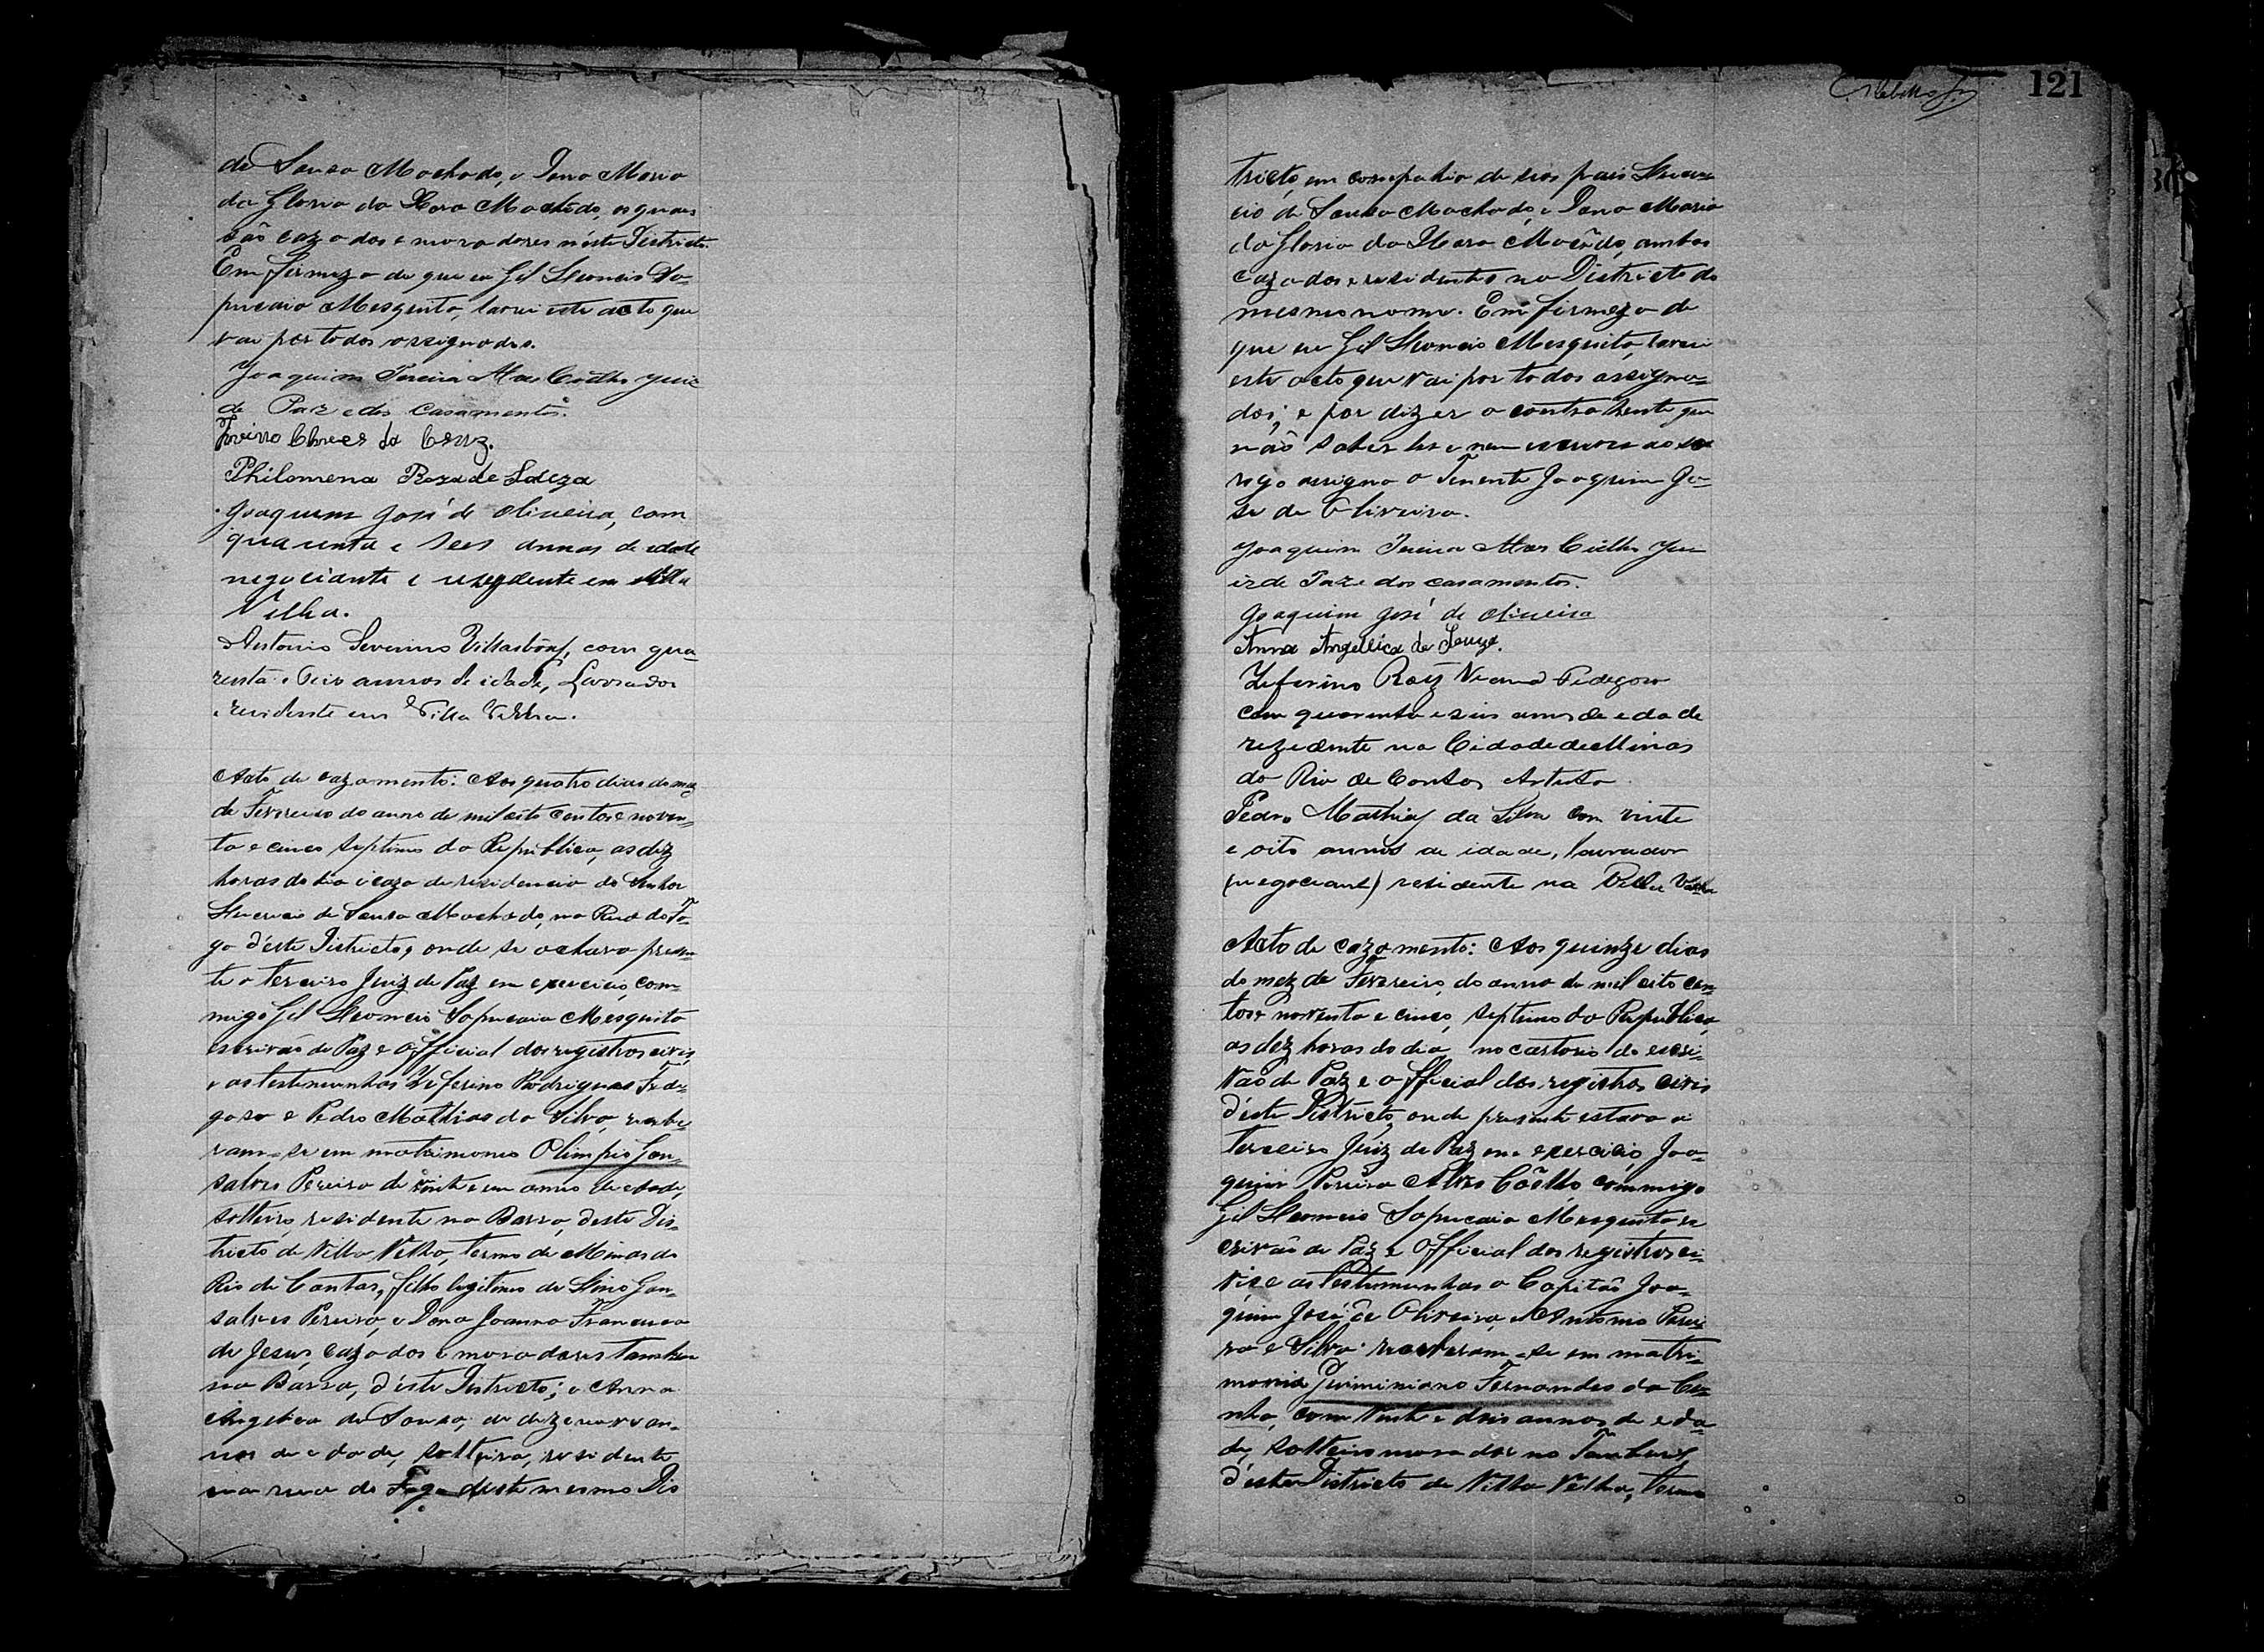 de Sousa Machado, e Dona Maria
da Gloria da Hora Machado, os quaes
são cazados e moradores néste Districto.
Em firmeza de que eu Gil Sa-
pucaia Mesquita, lavrei este acto que
vai por todos assignados.
Joaquim Pereira Alves Coêlho Juiz
de Paz e dos casamentos.
Jovino da Cruz.
Philomena Roza de Souza
Joaquim José de Oliveira, com
quarenta e seis annos de edade
negociante e rezedente em Villa
Velha.
Antonio Severino Villasbôas, com qua-
renta e seis annos de idade, Lavrador
e residente em Villa Velha.
Acto de cazamento: Aos quatro dias do mez
de Fevereiro do anno de mil oito centos e noven-
ta e cinco septimo da Republica, as dez
horas do dia e caza de residencia do Senhor
de Sousa Machado, na Rua do Fo-
go d'este Districto, onde se achava presen-
te o terceiro Juiz de Paz em exercicio, com-
migo Gil Sapucaia Mesquita
escrivão de Paz e Official dos registros civis,
e as testemunhas Zeferino Rodrigues Fede-
goso e Pedro Mathias da Silva, recebe-
ram-se em matrimonio Olimpio Gon-
salves Pereira de vinte e um annos de edade,
solteiro, residente na Barra, deste Dis-
tricto de Villa Velha, termo de Minas do
Rio de Contas, filho legitimo de Gon-
salves Pereira, e Dona Joanna Francisca
de Jesus, cazados e moradores tambem
na Barra, d'éste Districto; e Anna
Angelica de Sousa, de dezenove an-
nos de edade, solteira, residente
na rua do Fogo deste mesmo Dis
121
tricto, em companhia de seos pais
cio de Sousa Machado, e Dona Maria
da Gloria da Hora Machado, ambos
cazados e residentes no Districto do
mesmo nome. Em firmeza de
que eu Gil Mesquita, lavrei
este acto que vai por todos assigna-
dos; e por dizer o contrahente que
não saber ler e nem escrever ao seo
rogo assigna o Tenente Joaquim Jo-
se de Oliveira.
Joaquim Pereira Alves Coêlho Ju-
iz de Paz e dos casamentos.
Joaquim José de Oliveira
Anna Angellica de Souza.
Zeferino Roiz Fedegoso
com quarenta e seis annos de edade
rezedente na Cidade de Minas
do Rio de Contas Artista
Pedro Mathias da Silva com vinte
e oito annos de idade, lavrador
(negociante) residente na Villa Velha
Acto de cazamento: Aos quinze dias
do mez de Fevereiro, do anno de mil oito cen-
tos e noventa e cinco, septimo da Republica
as dez horas do dia, no cartorio do escri-
vão de Paz e official dos registros civis
d'éste Districto, onde presente estava o
terceiro Juiz de Paz em exercicio, Joa-
quim Pereira Alves Coêlho, commigo
Gil Sapucaia Mesquita es
crivão de Paz e Official dos registros ci-
vis, e as testemunhas o Capitão Joa-
quim José de Oliveira, e Antonio Perei-
ra e Silva: receberam-se em matri-
monio Fernandes da Cu-
nha, com vinte e dois annos de eda-
de, solteiro morador no Tamburil,
d'éste Districto de Villa Velha, termo